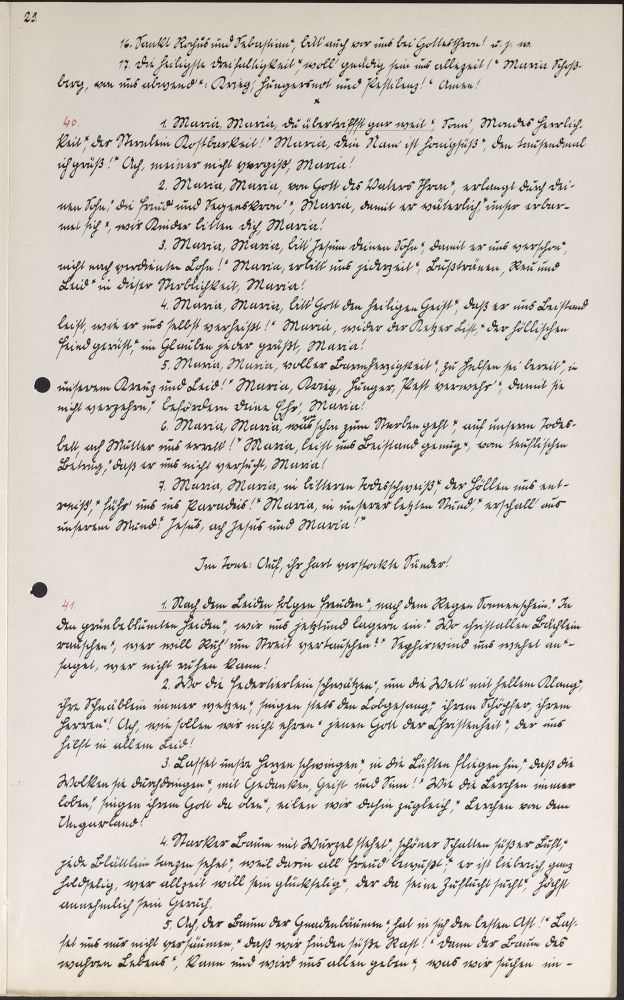 29.
16. Sankt Rochus und Sebastian", bitt' auch vor uns bei Gottes Thron! u. s. w.
17. Die heiligste Dreifaltigkeit", woll' gnädig sein uns allezeit!" Maria Schoß-
berg, von uns abwend": Krieg, Hungersnot und Pestilenz!" Amen!
*
40. 1. Maria, Maria, du übertriffst gar weit", Sonn', Mondes Herrlich-
keit", der Sternlein Kostbarkeit!" Maria, dein Nam' ist honigsüß", den tausendmal
ich grüß!" Ach, meiner nicht vergiß, Maria!
2. Maria, Maria, von Gott des Vaters Thron", erlangt durch dei-
nen Sohn," die Freud' und Segenskron'", Maria, damit er väterlich" unser erbar-
met sich", wir Kinder bitten dich, Maria!
3. Maria, Maria, bitt' Jesum deinen Sohn", damit er uns verschon",
nicht nach verdientem Lohn!" Maria, erbitt' uns jederzeit", Bußtränen, Reu und
Leid" in dieser Sterblichkeit, Maria!
4. Maria, Maria, bitt' Gott den heiligen Geist", daß er uns Beistand
leist, wie er uns selbst verheißt!" Maria, wider der Ketzer List," der höllischen
Feind gerüst," im Glauben jeder grüßt, Maria!
5. Maria, Maria, voller Barmherzigkeit", zu helfen sei bereit", in
unserem Kreuz und Leid!" Maria, Krieg, Hunger, Pest verwehr'", damit sie
nicht verzehren," befördern deine Ehr', Maria!
6. Maria, Maria, was schon zum Sterben geht", auf unserm Todes-
bett, ach Mutter uns errett'!" Maria, leist uns Beistand genug", vom teuflischen
Betrug," daß er uns nicht versucht, Maria!
7. Maria, Maria, in bitteren Todesschweiß" der Höllen uns ent-
reiß'," führ' uns ins Paradeis!" Maria, in unserer letzten Stund'," erschall' aus
unserem Mund:" Jesus, ach Jesus und Maria!"
Im Tone: Auf, ihr hart verstockte Sünder!
41. 1. Nach dem Leiden folgen Freuden", nach dem Regen Sonnenschein." In
den grünbeblümten Heiden", wir uns jetzund lagern ein." Wo christallen Bächlein
rauschen", wer will Ruh' um Streit vertauschen?" Sephirwind uns wehet an"-
saget, wer nicht ruhen kann!
2. Wo die Federtierlein schwätzen", um die Wett' mit hellem Klang",
ihre Schnäblein immer wetzen," singen stets den Lobgesang," ihrem Schöpfer, ihrem
Herren"! Ach, wie sollen wir nicht ehren" jenen Gott der Christenheit", der uns
hilft in allem Leid!
3. Lasset unsre Herzen schwingen", in die Lüften fliegen hin," daß die
Wolken sie durchdringen", mit Gedanken, Geist und Sinn!" Wie die Lerchen immer
loben," singen ihrem Gott da oben", eilen wir dahin zugleich," Lerchen von dem
Ungarland!
4. Starker Baum mit Wurzel stehet", schöner Schatten süßer Luft,"
jede Blättlein tanzen sehet", weil darin all' Freud' bewußt," er ist lieberich ganz
holdselig, wer allzeit will sein glückselig", der da seine Zuflucht sucht", höchst
annehmlich sein Geruch.
5. Ach, der Baum der Gnadenbäumen", hat in sich den besten Ast!" Las-
set uns nur nicht versäumen," daß wir finden süße Rast!" Dann der Baum des
wahren Lebens", kann und wird uns allen geben", was wir suchen im-